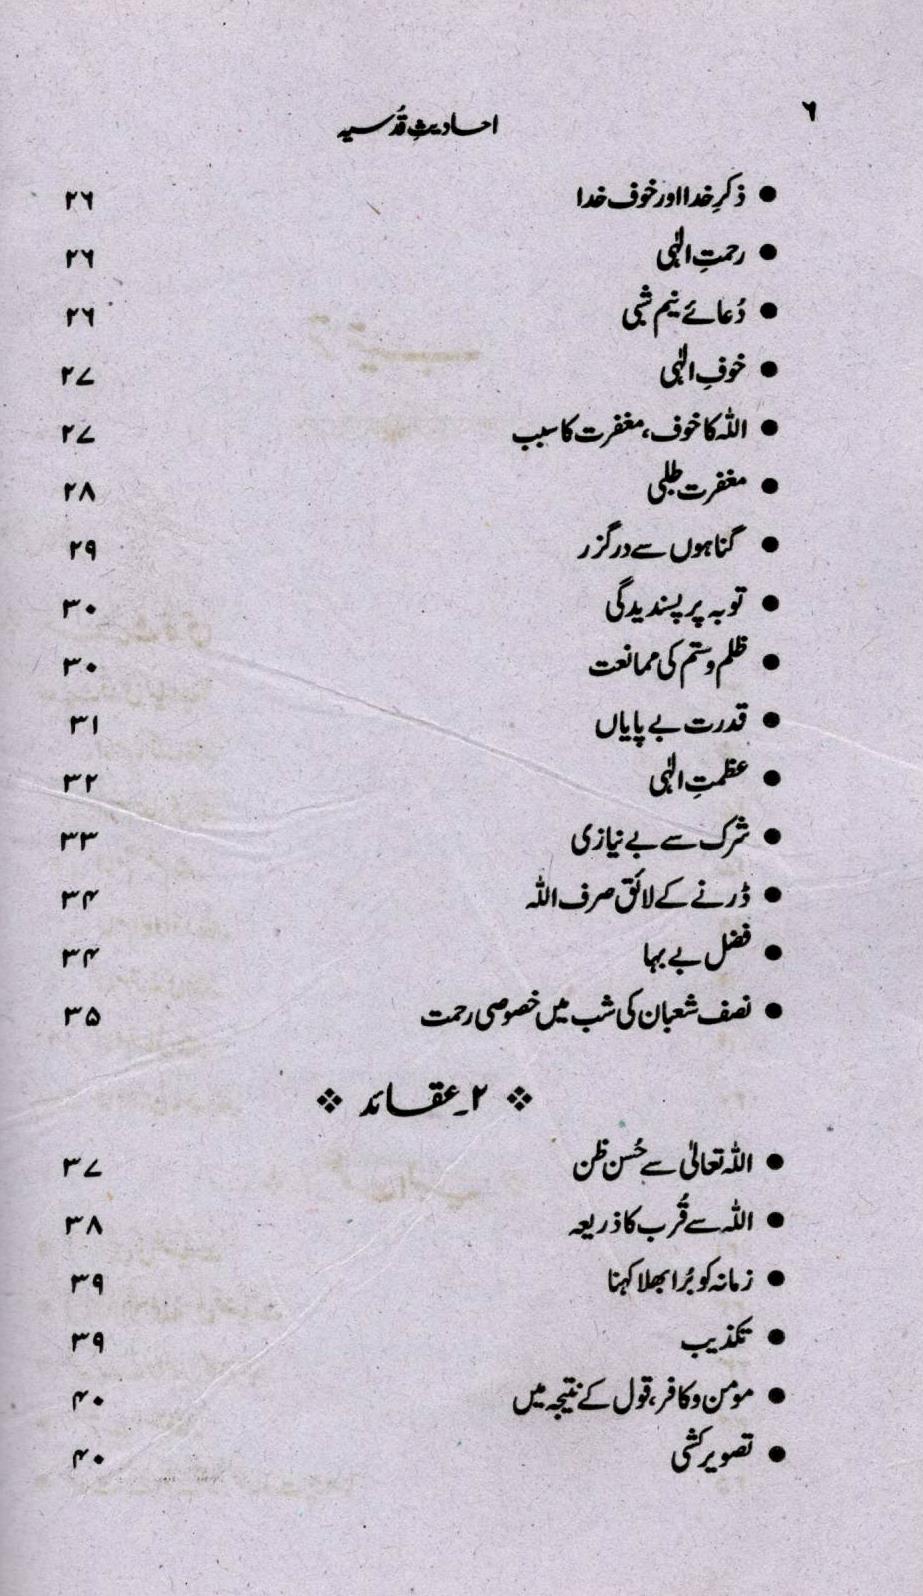 ۶
احادیثِ قُدسیہ
● ذکرِ خدا اور خوف خدا ۲۶
● رحمتِ الٰہی ۲۶
● دُعائے نیم شبی ۲۶
● خوفِ الٰہی ۲۷
● اللہ کا خوف، مغفرت کا سبب ۲۷
● مغفرت طلبی ۲۸
● گناہوں سے درگزر ۲۹
● توبہ پر پسندیدگی ۳۰
● ظلم و ستم کی ممانعت ۳۰
● قدرت بے پایاں ۳۱
● عظمتِ الٰہی ۳۲
● شرک سے بے نیازی ۳۳
● ڈرنے کے لائق صرف اللہ ۳۴
● فضل بے بہا ۳۴
● نصف شعبان کی شب میں خصوصی رحمت ۳۵
❖ ۲۔عقائد ❖
● اللہ تعالیٰ سے حُسن ظن ۳۷
● اللہ سے قُرب کا ذریعہ ۳۸
● زمانہ کو بُرا بھلا کہنا ۳۹
● تکذیب ۳۹
● مومن و کافر، قول کے نتیجہ میں ۴۰
● تصویر کشی ۴۰